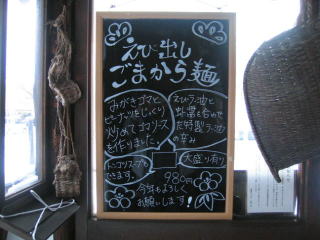 えび出し
ごまから麺
みがきゴマと
ピーナッツをじっくり
炒めてゴマソース
を作りました。
えびラー油と
を合わせ
た特製ラー油
の辛み
トンコツスープも
できます。
大盛り有り
980円
今年もよろしく
お願いします!